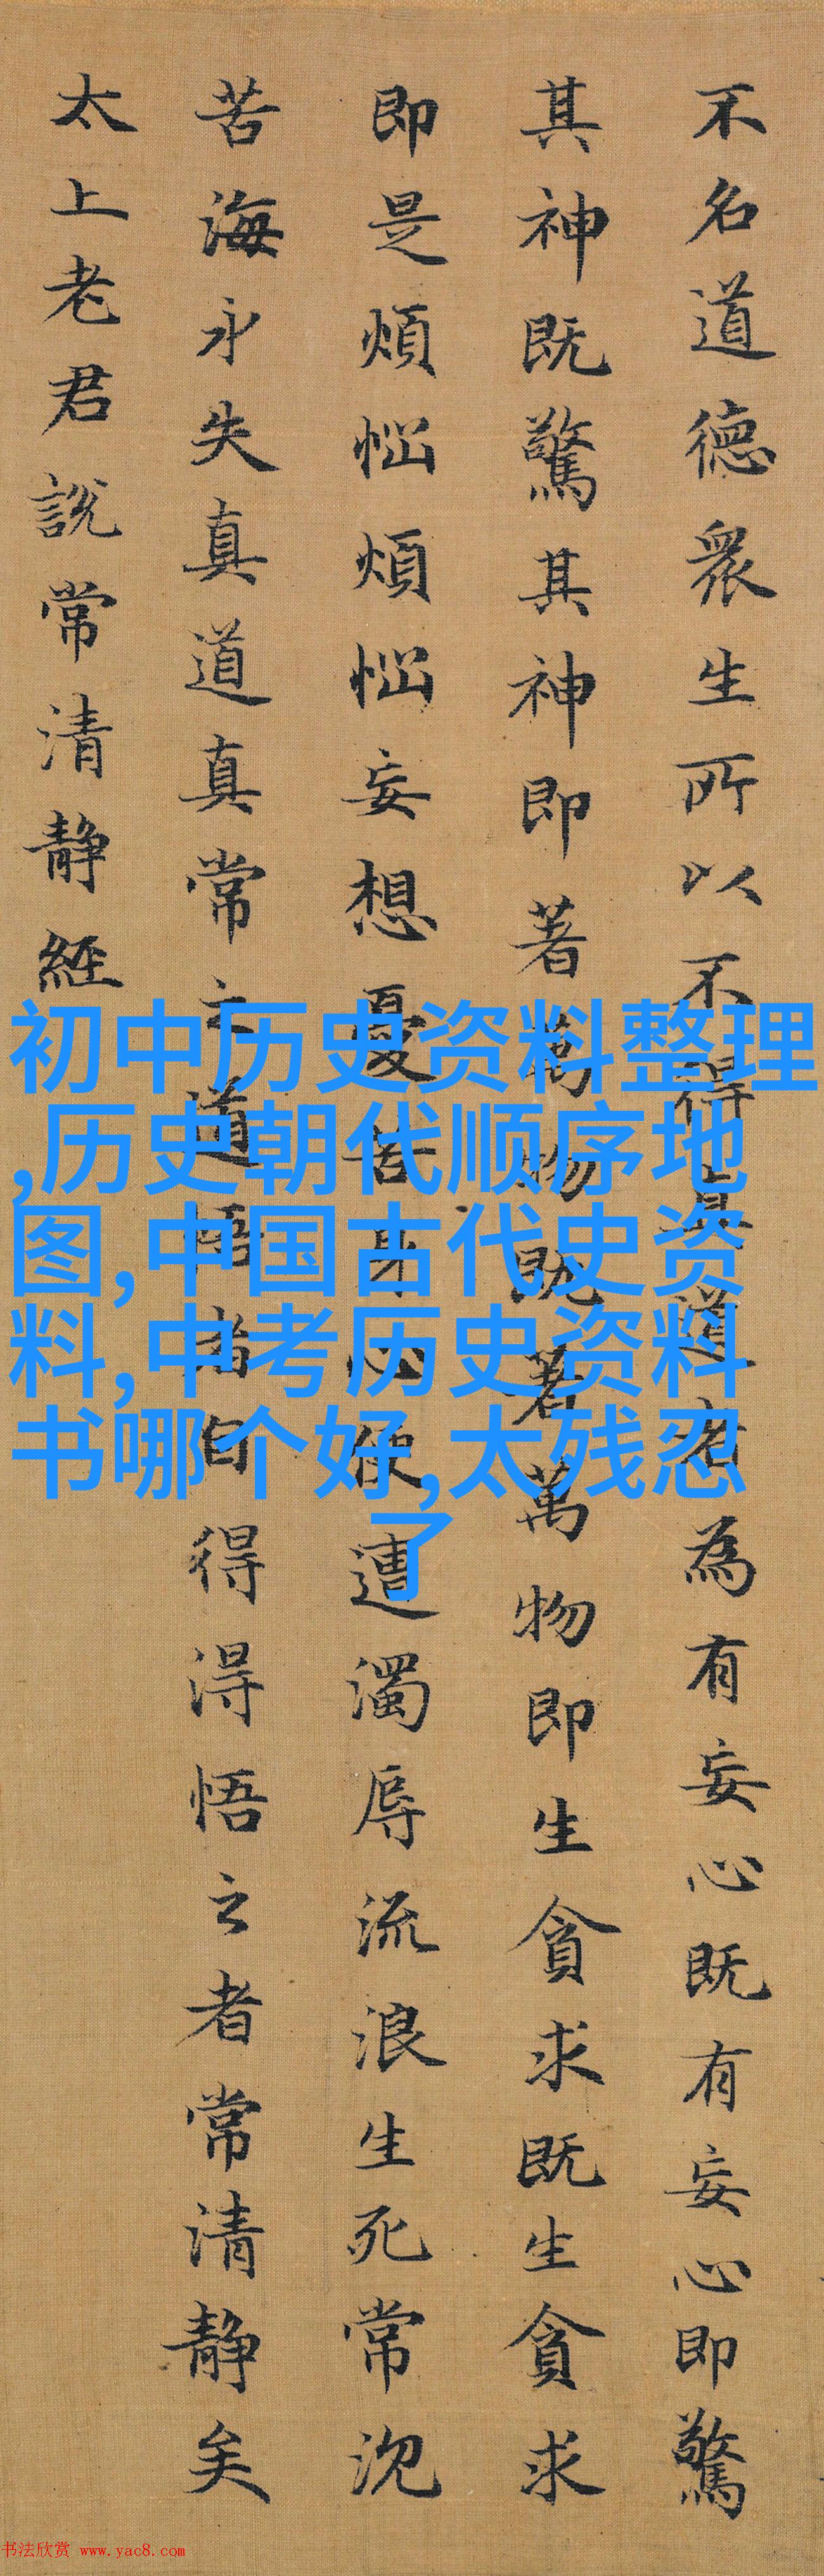 不名道德衆生所以不得真道者為有妄心既有妄心即驚
其神既驚其神即著萬物既著萬物即生貪求既生貪求
即是煩惱煩惱妄想憂苦身心便遭濁辱流浪生死常沉
苦海永失真道真常之道悟者自得得悟之者常清靜矣
太上老君說常清靜經
初中历史资料整理
,历史朝代顺序地
图,中国古代史资
料,中考历史资料
书哪个好,太残忍
了
书法欣赏 www.yac8.com